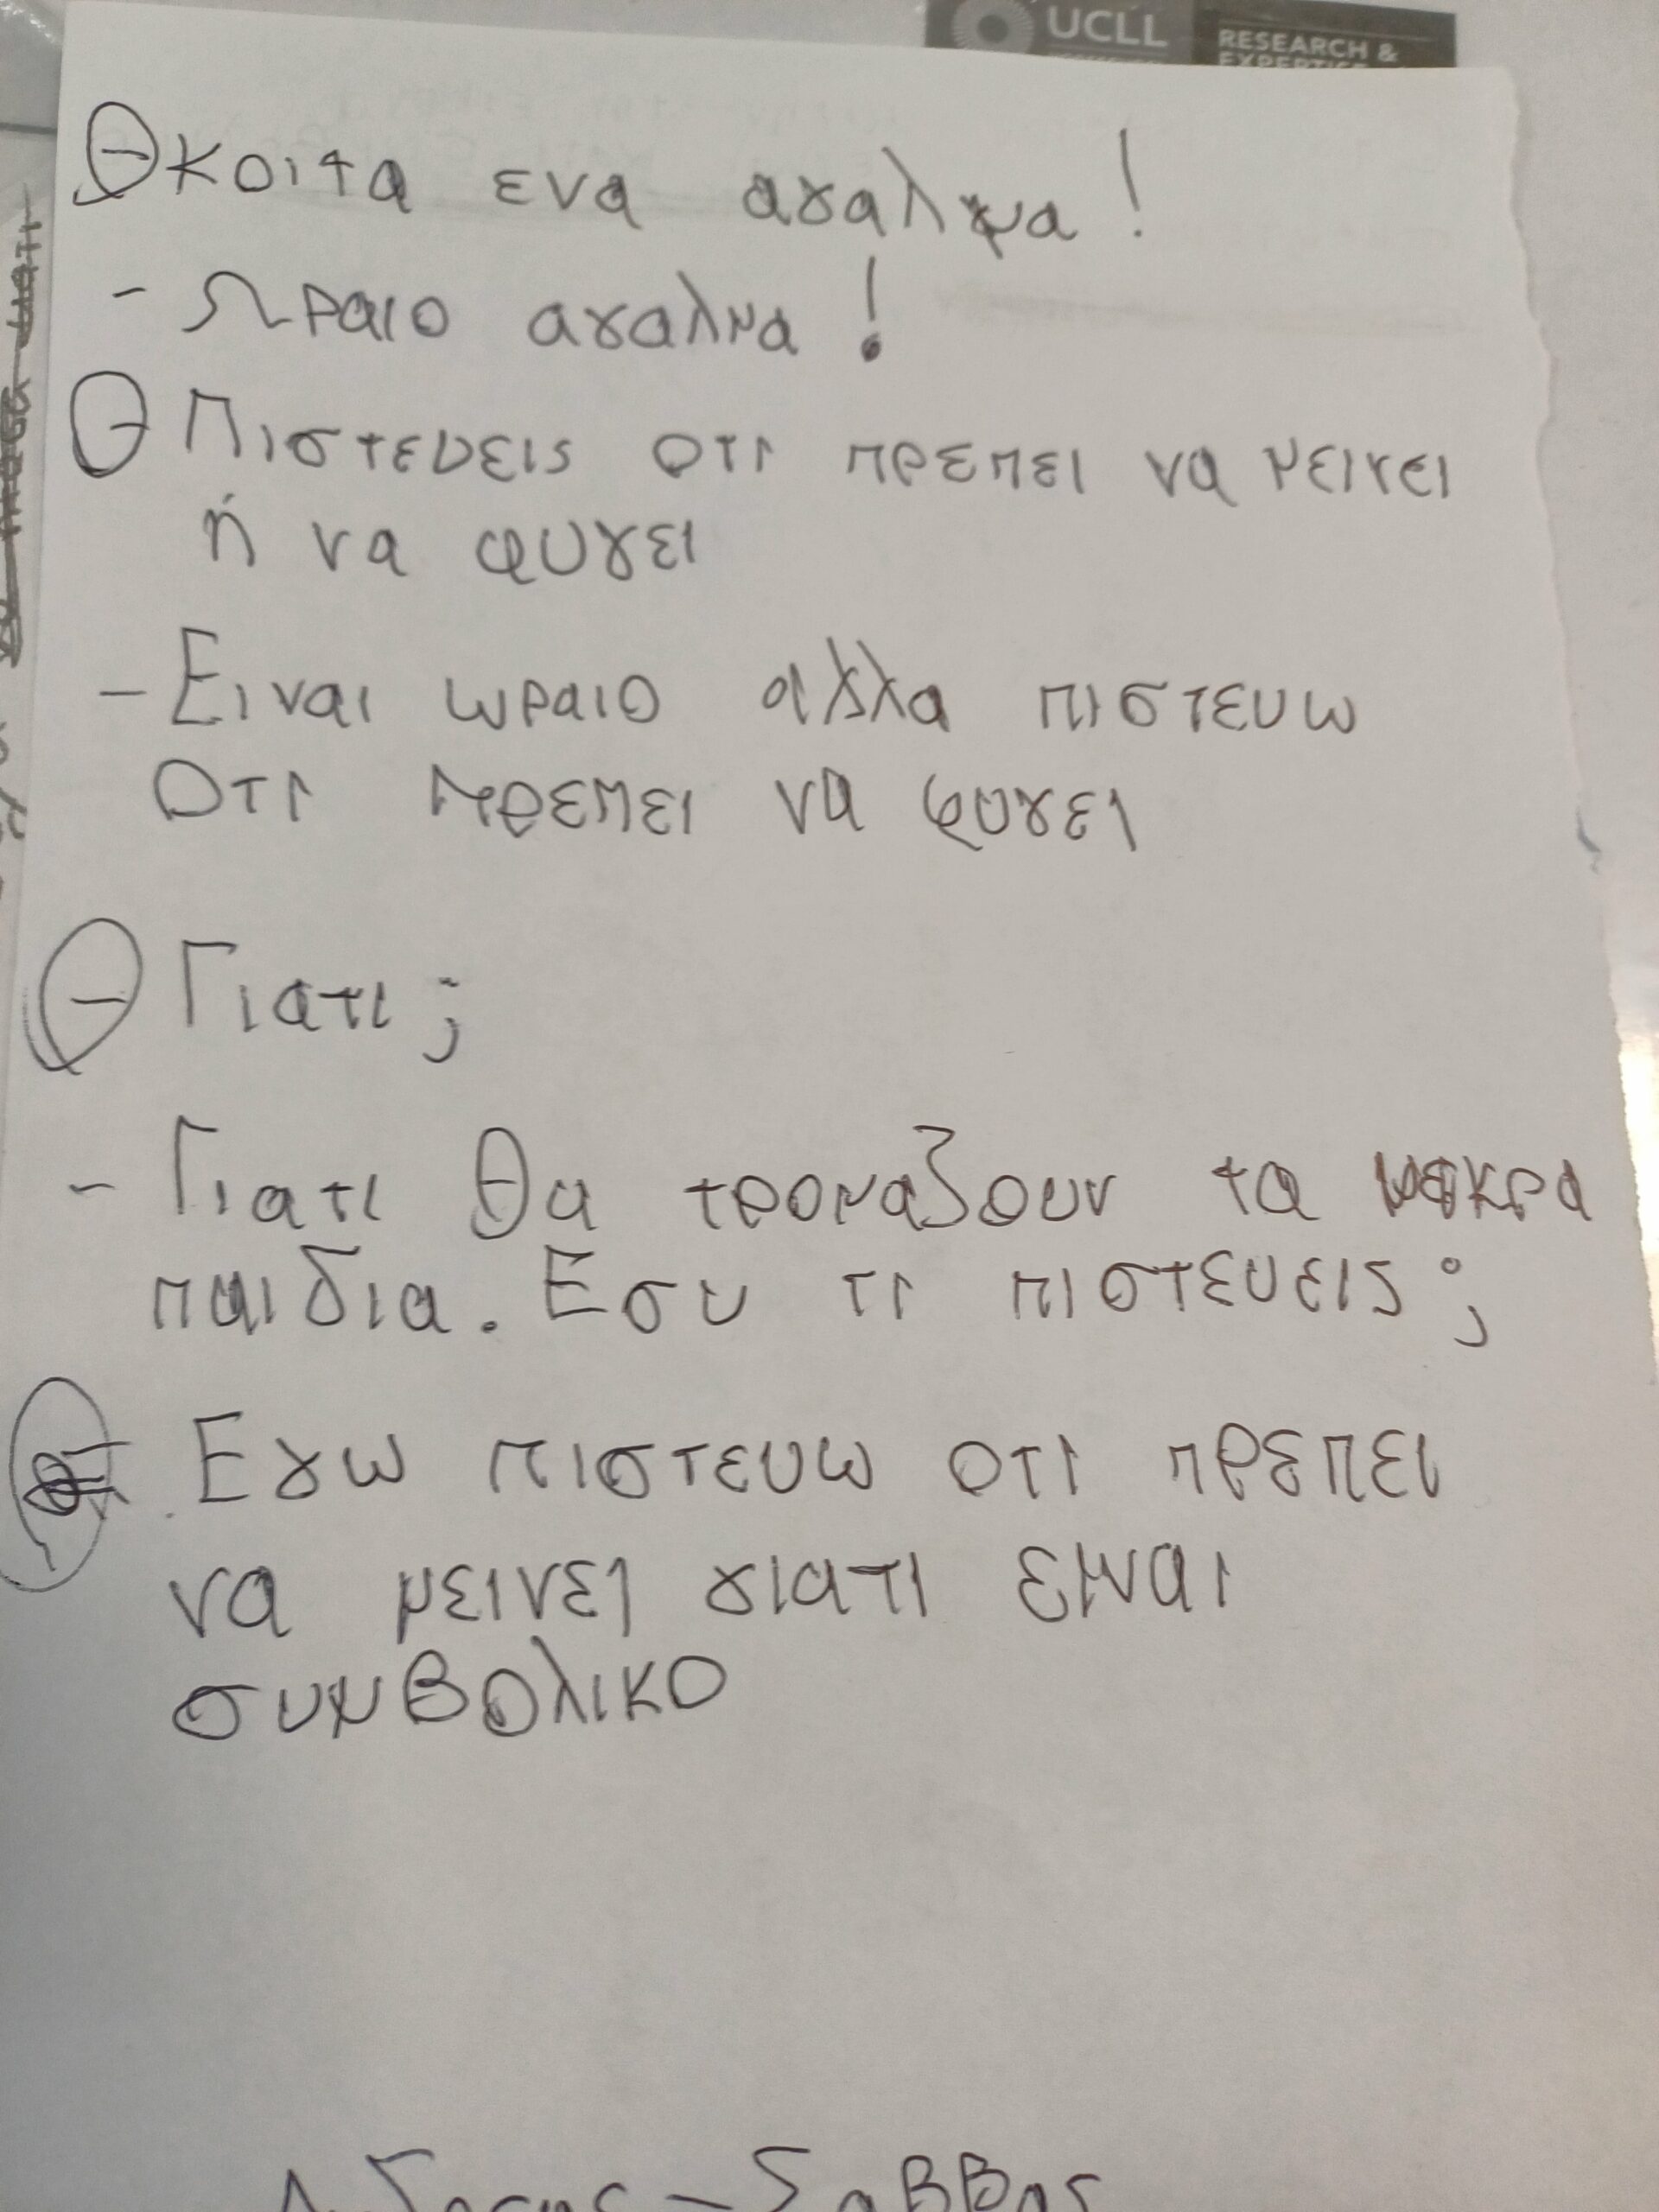 UCLL RESEARCH &
EXPERTISE
- κοιτα ενα αγαλμα!
- Ωραιο αγαλμα!
- Πιστευεις οτι πρεπει να μεινει
ή να φυγει
- Ειναι ωραιο αλλα πιστευω
Οτι πρεπει να φυγει
- Γιατι;
- Γιατι θα τρομαζουν τα μικρα
παιδια. Εσυ τι πιστευεις;
- Εγω πιστευω οτι πρεπει
να μεινει γιατι ειναι
συμβολικο
- Σαββας